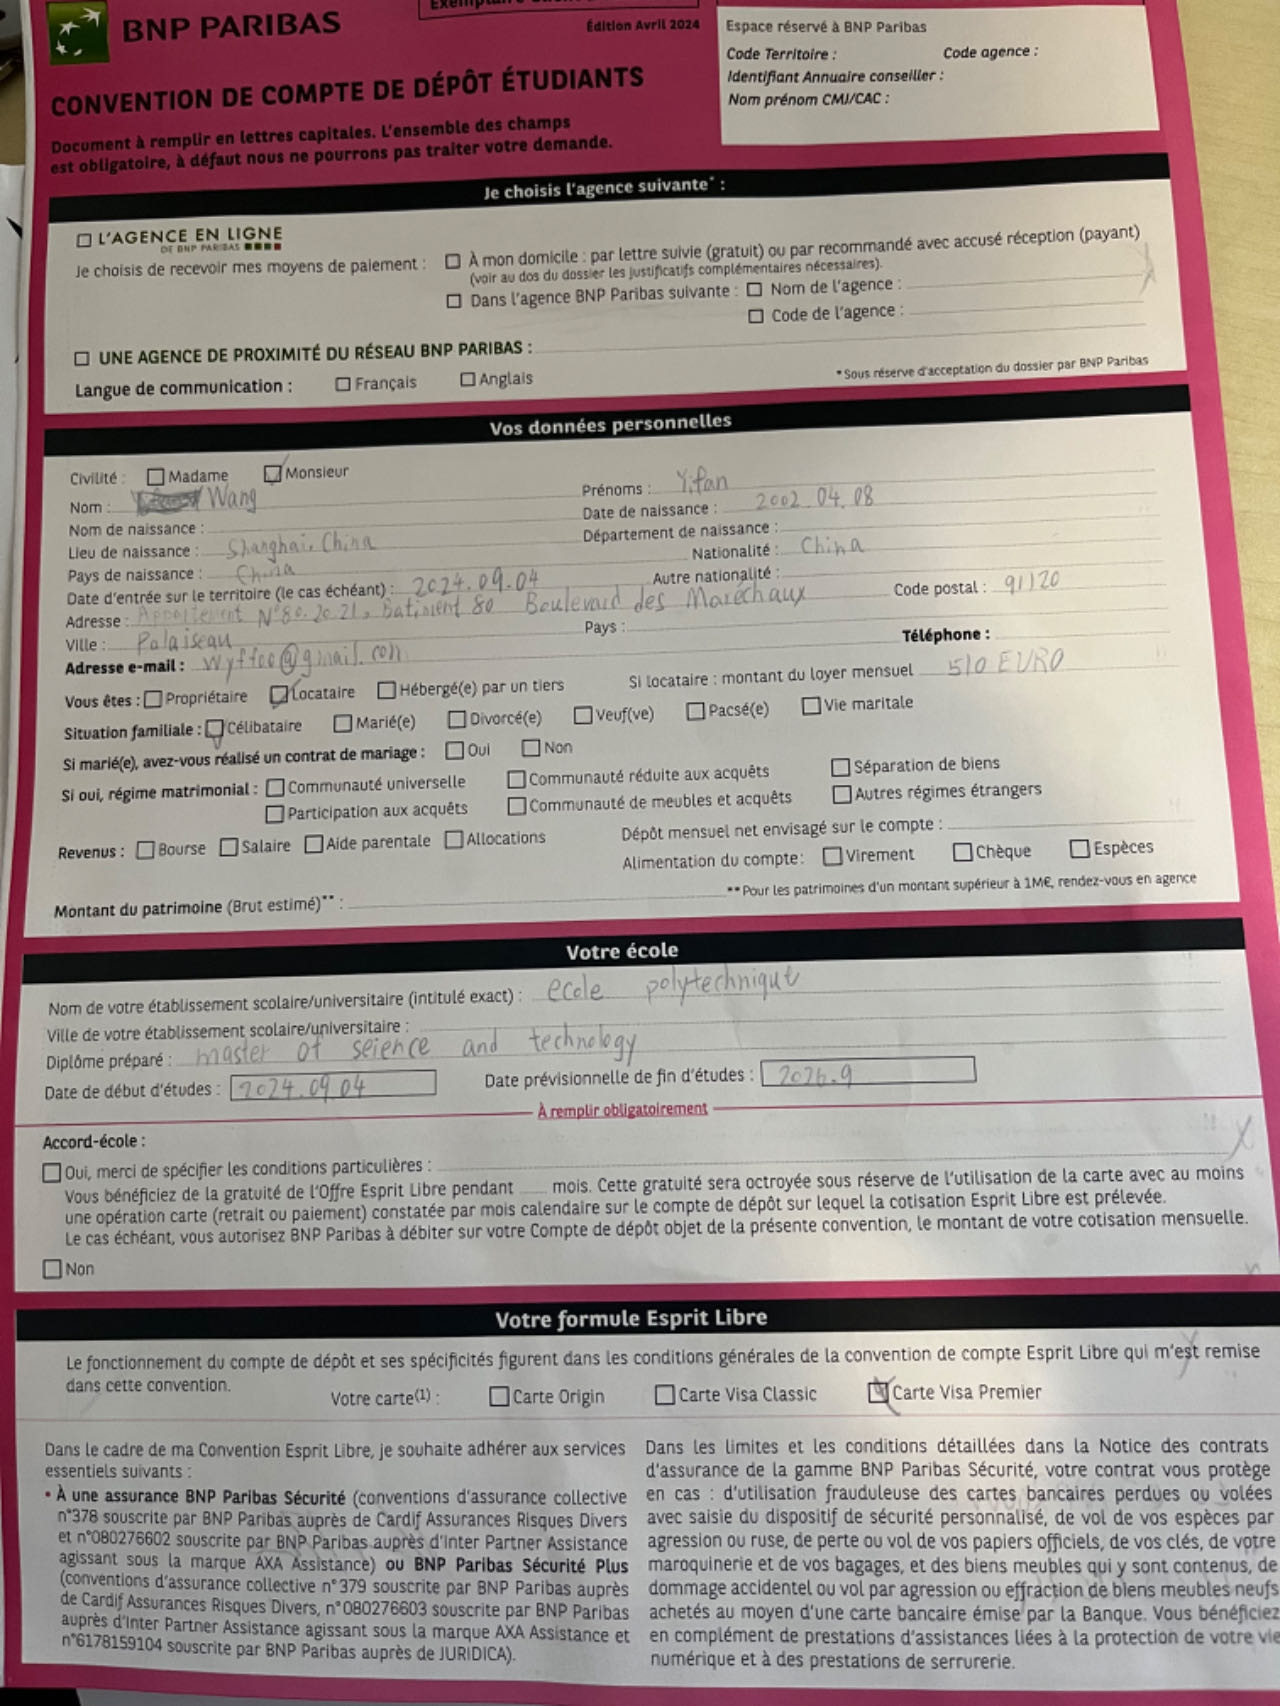 BNP PARIBAS
Édition Avril 2024
CONVENTION DE COMPTE DE DÉPÔT ÉTUDIANTS
Document à remplir en lettres capitales. L'ensemble des champs
est obligatoire, à défaut nous ne pourrons pas traiter votre demande.
Espace réservé à BNP Paribas
Code Territoire : Code agence :
Identifiant Annuaire conseiller :
Nom prénom CMJ/CAC :
Je choisis l'agence suivante* :
L'AGENCE EN LIGNE
DE BNP PARIBAS
Je choisis de recevoir mes moyens de paiement : À mon domicile : par lettre suivie (gratuit) ou par recommandé avec accusé réception (payant)
(voir au dos du dossier les justificatifs complémentaires nécessaires).
Dans l'agence BNP Paribas suivante : Nom de l'agence :
Code de l'agence :
UNE AGENCE DE PROXIMITÉ DU RÉSEAU BNP PARIBAS :
Langue de communication : Français Anglais
* Sous réserve d'acceptation du dossier par BNP Paribas
Vos données personnelles
Civilité : Madame Monsieur
Nom : Wang Prénoms : Yifan
Nom de naissance : Date de naissance : 2002.04.08
Lieu de naissance : Shanghai. China Département de naissance :
Pays de naissance : China Nationalité : China
Date d'entrée sur le territoire (le cas échéant) : 2024.09.04 Autre nationalité :
Adresse : Appartement N°80.20.21, batiment 80 Boulevard des Maréchaux Code postal : 91120
Ville : Palaiseau Pays :
Adresse e-mail : wyffoo@gmail.com Téléphone :
Vous êtes : Propriétaire Locataire Hébergé(e) par un tiers Si locataire : montant du loyer mensuel 510 EURO
Situation familiale : Célibataire Marié(e) Divorcé(e) Veuf(ve) Pacsé(e) Vie maritale
Si marié(e), avez-vous réalisé un contrat de mariage : Oui Non
Si oui, régime matrimonial : Communauté universelle Communauté réduite aux acquêts Séparation de biens
Participation aux acquêts Communauté de meubles et acquêts Autres régimes étrangers
Revenus : Bourse Salaire Aide parentale Allocations Dépôt mensuel net envisagé sur le compte :
Alimentation du compte: Virement Chèque Espèces
Montant du patrimoine (Brut estimé)** :
** Pour les patrimoines d'un montant supérieur à 1M€, rendez-vous en agence
Votre école
Nom de votre établissement scolaire/universitaire (intitulé exact) : ecole polytechnique
Ville de votre établissement scolaire/universitaire :
Diplôme préparé : master of seience and technology
Date de début d'études : 2024.09.04 Date prévisionnelle de fin d'études : 2026.9
À remplir obligatoirement
Accord-école :
Oui, merci de spécifier les conditions particulières :
Vous bénéficiez de la gratuité de l'Offre Esprit Libre pendant mois. Cette gratuité sera octroyée sous réserve de l'utilisation de la carte avec au moins
une opération carte (retrait ou paiement) constatée par mois calendaire sur le compte de dépôt sur lequel la cotisation Esprit Libre est prélevée.
Le cas échéant, vous autorisez BNP Paribas à débiter sur votre Compte de dépôt objet de la présente convention, le montant de votre cotisation mensuelle.
Non
Votre formule Esprit Libre
Le fonctionnement du compte de dépôt et ses spécificités figurent dans les conditions générales de la convention de compte Esprit Libre qui m'est remise
dans cette convention.
Votre carte(1) : Carte Origin Carte Visa Classic Carte Visa Premier
Dans le cadre de ma Convention Esprit Libre, je souhaite adhérer aux services
essentiels suivants :
• À une assurance BNP Paribas Sécurité (conventions d'assurance collective
n°378 souscrite par BNP Paribas auprès de Cardif Assurances Risques Divers
et n°080276602 souscrite par BNP Paribas auprès d'Inter Partner Assistance
agissant sous la marque AXA Assistance) ou BNP Paribas Sécurité Plus
(conventions d'assurance collective n°379 souscrite par BNP Paribas auprès
de Cardif Assurances Risques Divers, n°080276603 souscrite par BNP Paribas
auprès d'Inter Partner Assistance agissant sous la marque AXA Assistance et
n°6178159104 souscrite par BNP Paribas auprès de JURIDICA).
Dans les limites et les conditions détaillées dans la Notice des contrats
d'assurance de la gamme BNP Paribas Sécurité, votre contrat vous protège
en cas : d'utilisation frauduleuse des cartes bancaires perdues ou volées
avec saisie du dispositif de sécurité personnalisé, de vol de vos espèces par
agression ou ruse, de perte ou vol de vos papiers officiels, de vos clés, de votre
maroquinerie et de vos bagages, et des biens meubles qui y sont contenus, de
dommage accidentel ou vol par agression ou effraction de biens meubles neufs
achetés au moyen d'une carte bancaire émise par la Banque. Vous bénéficiez
en complément de prestations d'assistances liées à la protection de votre vie
numérique et à des prestations de serrurerie.